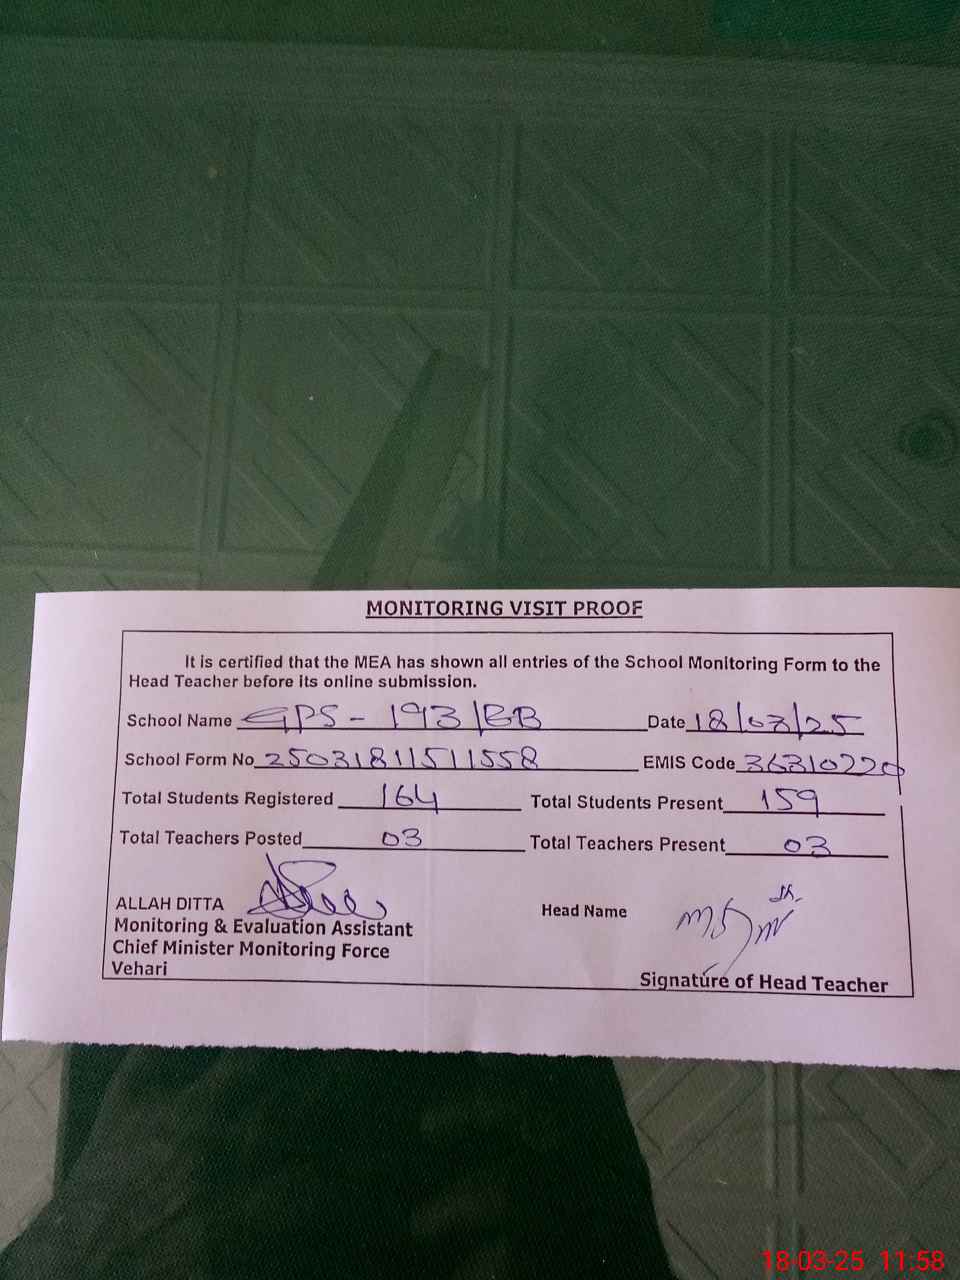 MONITORING VISIT PROOF
It is certified that the MEA has shown all entries of the School Monitoring Form to the
Head Teacher before its online submission.
School Name GPS - 193/EB Date 18/03/25
School Form No 25031811511558 EMIS Code 36310220
Total Students Registered 164 Total Students Present 159
Total Teachers Posted 03 Total Teachers Present 03
ALLAH DITTA Head Name
Monitoring & Evaluation Assistant
Chief Minister Monitoring Force
Vehari
Signature of Head Teacher
18-03-25 11:58